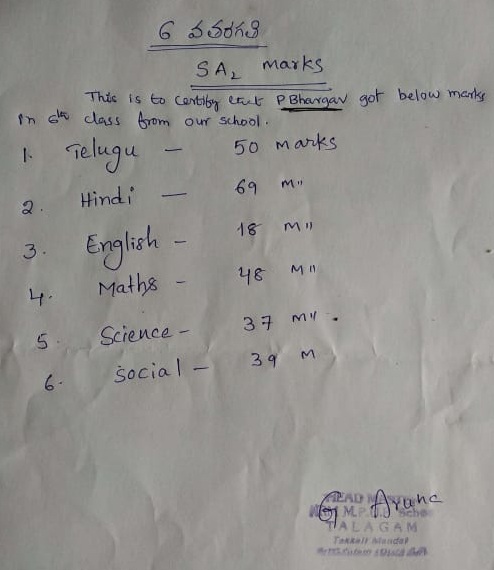 6 వ తరగతి
SA2 marks
This is to certify that P Bhargav got below marks
In 6th class from our school.
1. Telugu — 50 Marks
2. Hindi — 69 M"
3. English - 18 M"
4. Maths - 48 M"
5. Science - 37 M"
6. Social - 39 M
G Aruna
HEAD
M.P.
TALAGAM
Tekkali Mandal